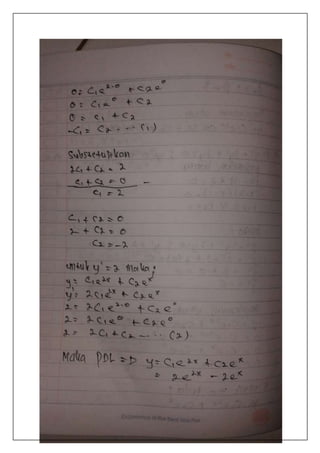 0 = C₁e^2.0 + C₂e⁰
0 = C₁e⁰ + C₂
0 = C₁ + C₂
-C₁ = C₂ ... (1)
Substetusikan
2C₁ + C₂ = 2
C₁ + C₂ = 0 -
C₁ = 2
C₁ + C₂ = 0
2 + C₂ = 0
C₂ = -2
untuk y' = 2 maka :
y = C₁e^2x + C₂e^x
y' = 2C₁e^2x + C₂e^x
2 = 2C₁e^2.0 + C₂e⁰
2 = 2C₁e⁰ + C₂e⁰
2 = 2C₁ + C₂ ... (2)
Maka PDL => y = C₁e^2x + C₂e^x
= 2e^2x - 2e^x